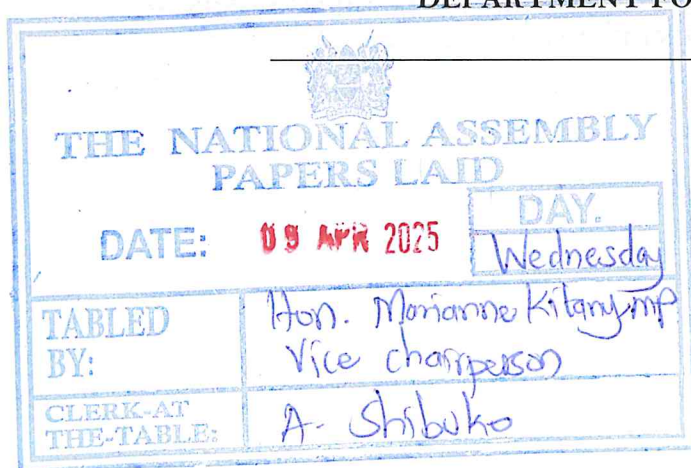 DEPARTMENT FO
THE NATIONAL ASSEMBLY
PAPERS LAID
DATE: 09 APR 2025
DAY.
Wednesday
TABLED BY:
Hon. Marianne Kitany, mp
Vice chairperson
CLERK-AT THE-TABLE:
A. Shibuko